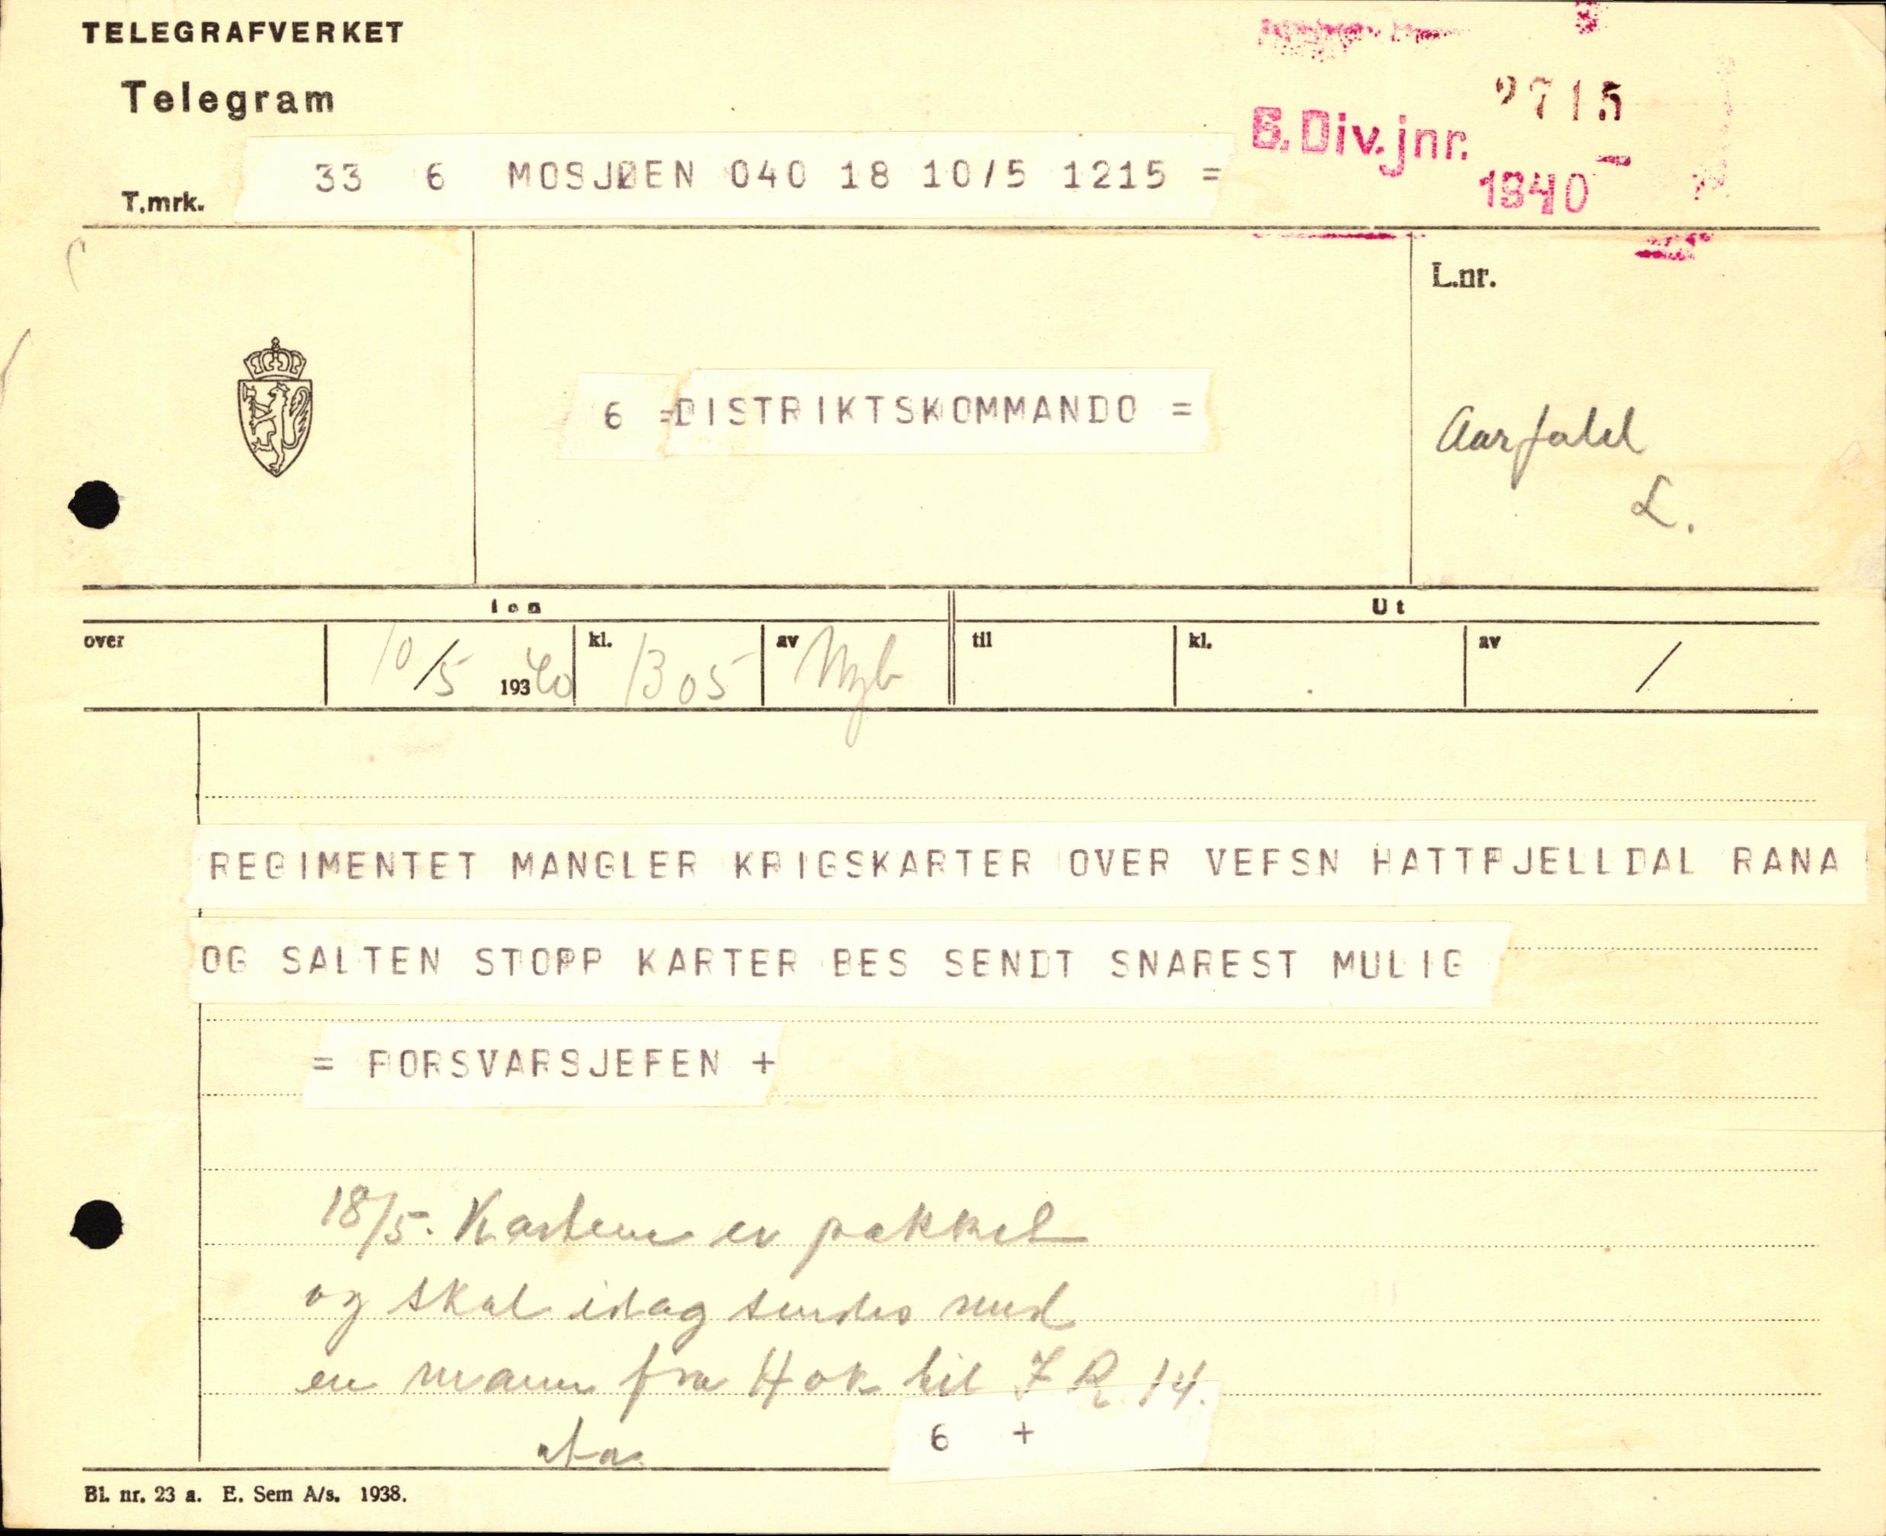 TELEGRAFVERKET
Telegram
2715
6. Div. jnr.
1940
T.mrk.
33 6 MOSJØEN 040 18 10/5 1215 =
L.nr.
6 =DISTRIKTSKOMMANDO =
L.
Inn
Ut
over
10/5 19340
kl. 1305
av
til
kl.
av /
REGIMENTET MANGLER KRIGSKARTER OVER VEFSN HATTFJELLDAL RANA
OG SALTEN STOPP KARTER BES SENDT SNAREST MULIG
= FORSVARSJEFEN +
18/5. Kartene er pakket
og skal idag sendes med
en mann fra Hok til I R 14.
6 +
Bl. nr. 23 a. E. Sem A/s. 1938.